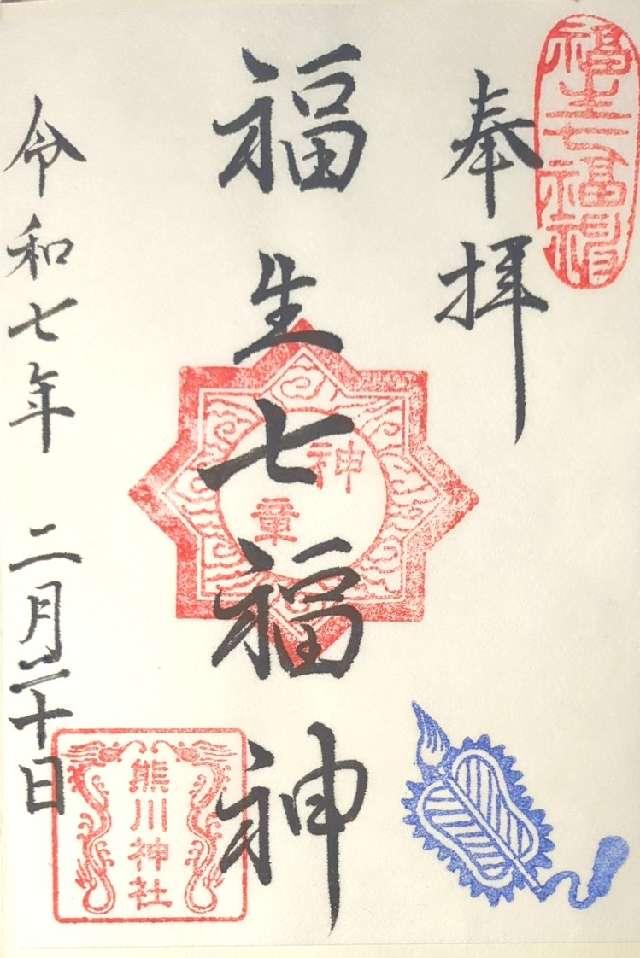 福生七福神
奉拝
福生七福神
神章
令和七年 二月二十日
熊川神社